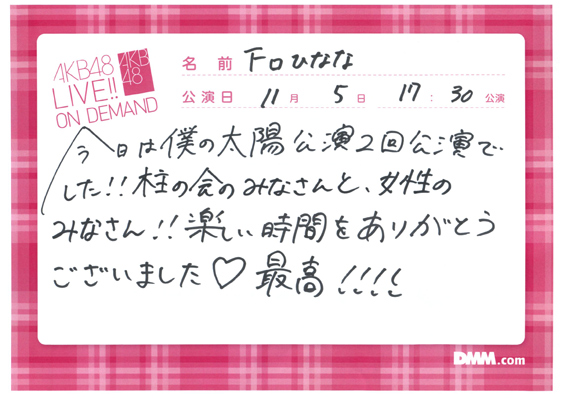 AKB48
LIVE!!
ON DEMAND
AKB
48
名前 下口ひなな
公演日 11月 5日 17:30公演
今日は僕の太陽公演2回公演で
した!!柱の会のみなさんと、女性の
みなさん!!楽しい時間をありがとう
ございました♡最高!!!!
DMM.com